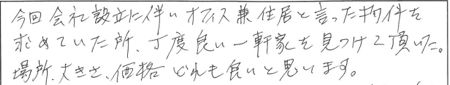 今回会社設立に伴いオフィス兼住居と言った物件を
求めていた所、丁度良い一軒家を見つけて頂いた。
場所、大きさ、価格どれも良いと思います。